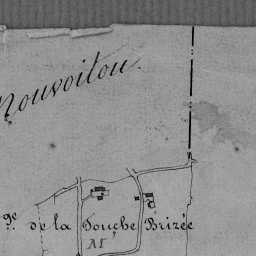 Nouvoitou
ge de la Touche Brizée